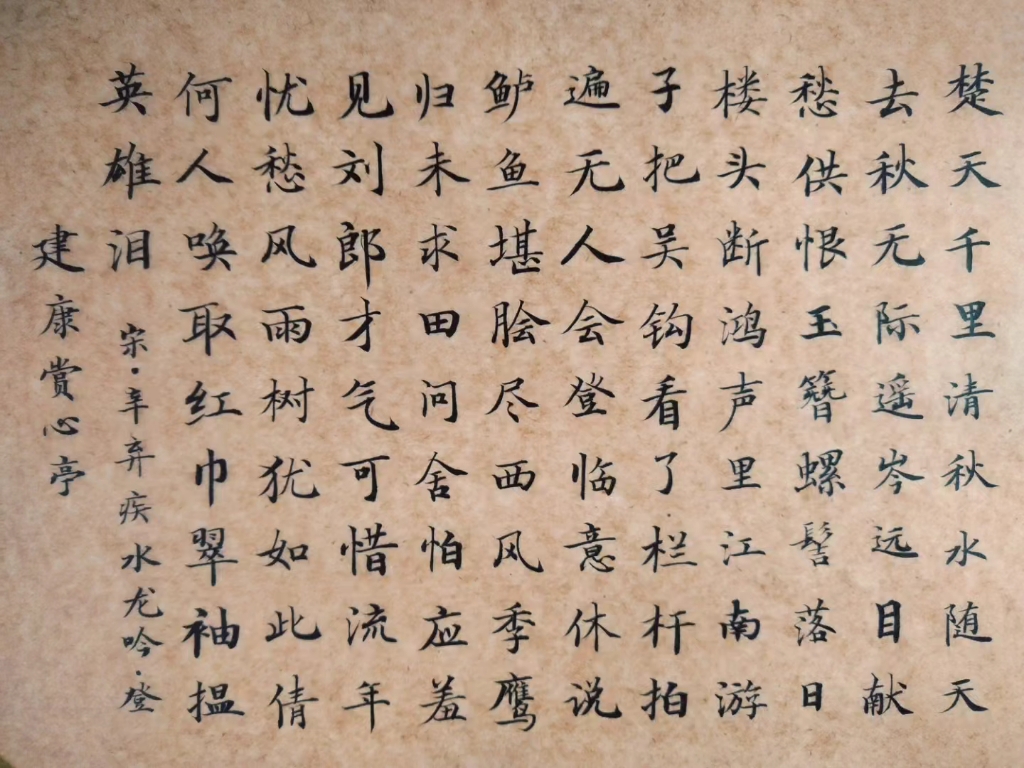 楚天千里清秋水随天
去秋无际遥岑远目献
愁供恨玉簪螺髻落日
楼头断鸿声里江南游
子把吴钩看了栏杆拍
遍无人会登临意休说
鲈鱼堪脍尽西风季鹰
归未求田问舍怕应羞
见刘郎才气可惜流年
忧愁风雨树犹如此倩
何人唤取红巾翠袖揾
英雄泪 宋·辛弃疾水龙吟·登
建康赏心亭